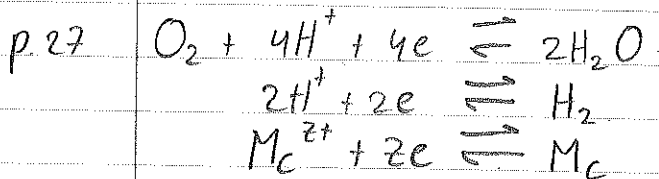 p.27 O₂ + 4H⁺ + 4e ⇌ 2H₂O
2H⁺ + 2e ⇌ H₂
M_c^{z+} + ze ⇌ M_c